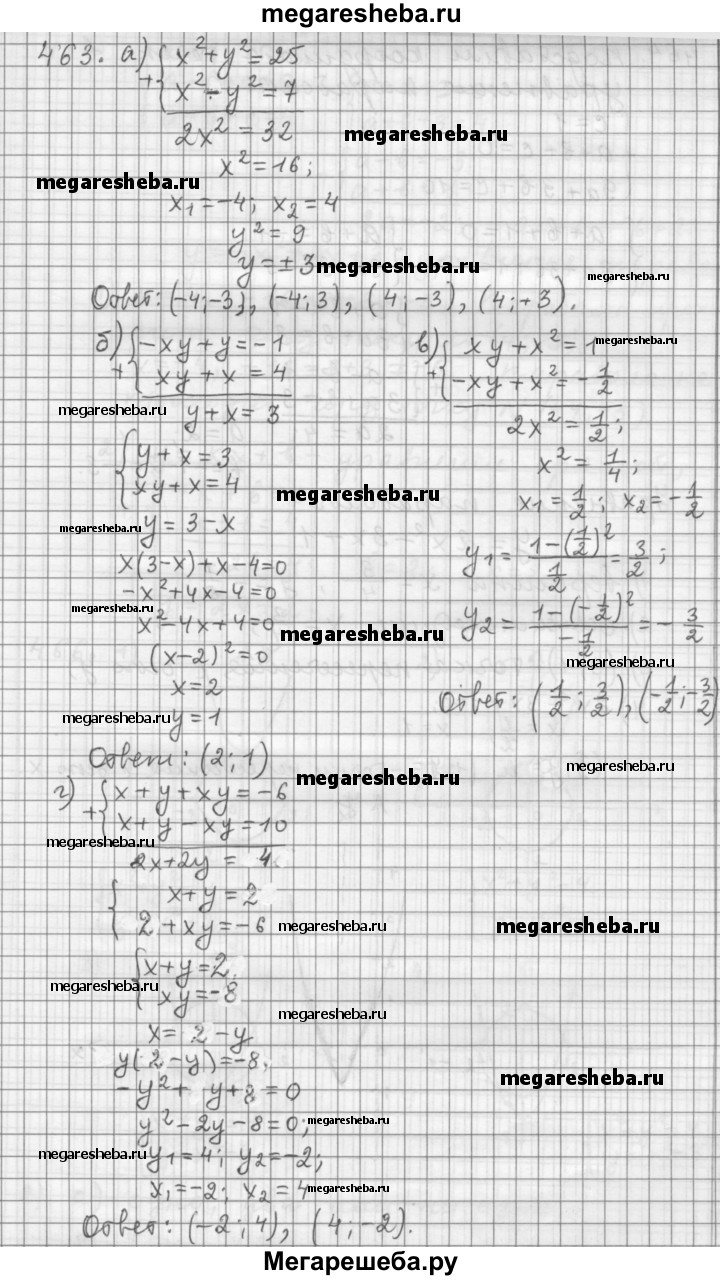 megaresheba.ru
463. а) + { x² + y² = 25
x² - y² = 7
2x² = 32
megaresheba.ru
x² = 16;
megaresheba.ru
x₁ = -4; x₂ = 4
y² = 9
y = ± 3
megaresheba.ru
megaresheba.ru
Ответ: (-4; -3), (-4; 3), (4; -3), (4; +3).
б) + { -xy + y = -1
xy + x = 4
megaresheba.ru
y + x = 3
{ y + x = 3
xy + x = 4
megaresheba.ru
megaresheba.ru
y = 3 - x
x(3-x) + x - 4 = 0
-x² + 4x - 4 = 0
megaresheba.ru
x² - 4x + 4 = 0
megaresheba.ru
(x-2)² = 0
x = 2
megaresheba.ru
y = 1
Ответ: (2; 1)
в) + { xy + x² = 1
megaresheba.ru
-xy + x² = -1/2
2x² = 1/2;
x² = 1/4;
x₁ = 1/2; x₂ = -1/2
y₁ = (1-(1/2)²)/(1/2) = 3/2;
y₂ = (1-(-1/2)²)/(-1/2) = -3/2
megaresheba.ru
Ответ: (1/2; 3/2), (-1/2; -3/2)
megaresheba.ru
megaresheba.ru
г) + { x + y + xy = -6
x + y - xy = 10
megaresheba.ru
2x + 2y = 4
{ x + y = 2
2 + xy = -6
megaresheba.ru
megaresheba.ru
{ x + y = 2
xy = -8
megaresheba.ru
megaresheba.ru
x = 2 - y
y(2-y) = -8.
megaresheba.ru
-y² + y + 8 = 0
y² - 2y - 8 = 0;
megaresheba.ru
megaresheba.ru
y₁ = 4; y₂ = -2;
x₁ = -2; x₂ = 4
megaresheba.ru
Ответ: (-2; 4), (4; -2).
Мегарешеба.ру